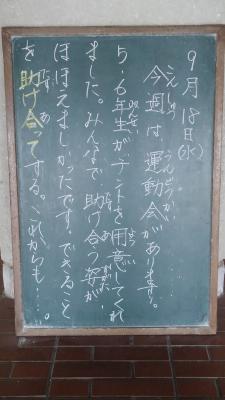 9月18日(水)
今週は運動会があります。
5・6年生がテントを用意してくれ
ました。みんなで助け合う姿が
ほほえましかったです。できること
を助け合ってする。これからも…。